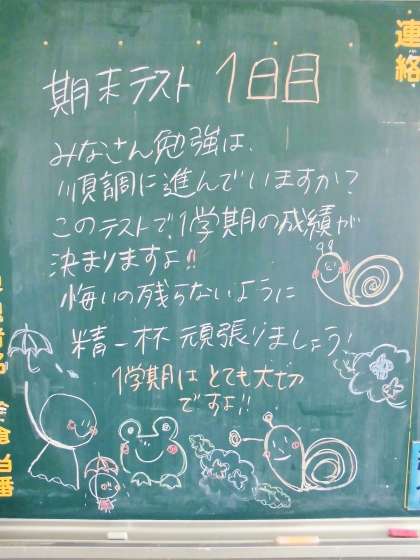 期末テスト 1日目
みなさん勉強は、
順調に進んでいますか?
このテストで、1学期の成績が
決まりますよ!!
悔いの残らないように
精一杯 頑張りましょう!
1学期は とても大切
ですよ!!
連絡